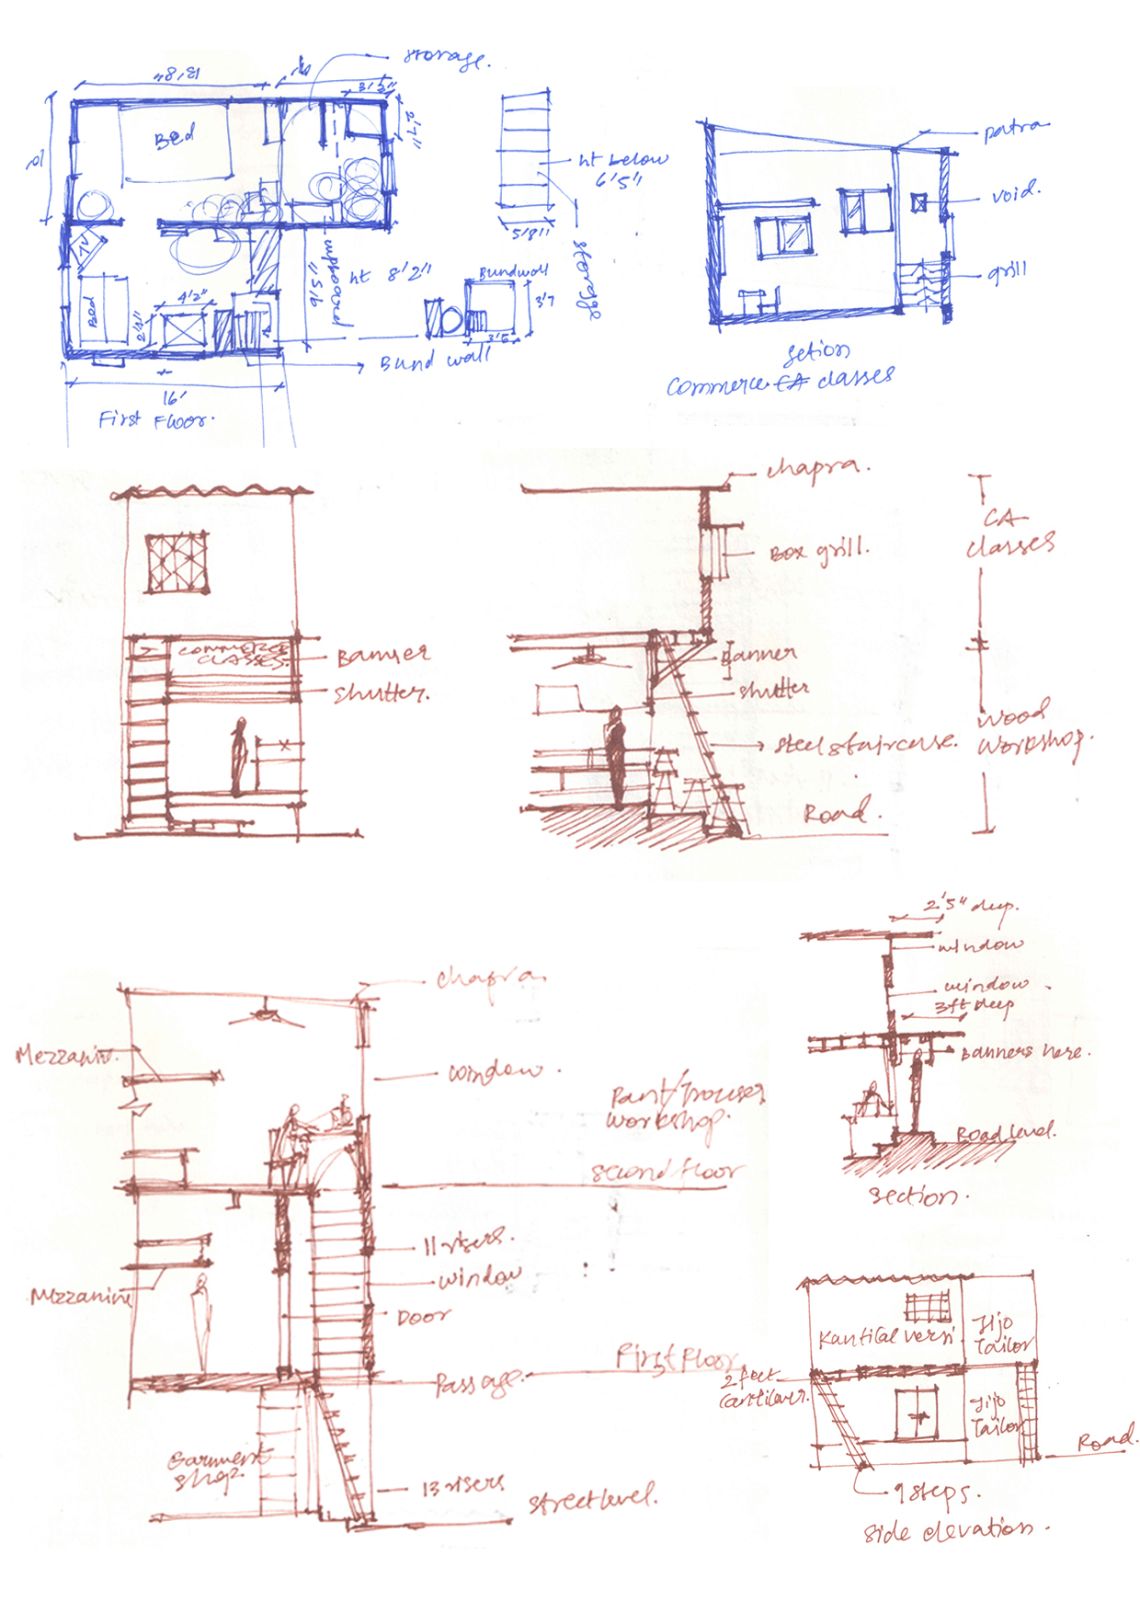 storage.
13'8"
3'5"
2'7"
10'
Bed
TV
Bed
4'2"
2'9"
9'5"
ht 8'2"
Bundwall
3'7
3'6
Bund wall
16'
First Floor.
ht below
6'5"
5'8"
storage
patra
void.
grill
setion
commerce CA classes
chapra.
Box grill.
CA
classes
COMMERCE
CLASSES.
Banner
shutter.
Banner
shutter
steel staircase.
Road.
Wood
Workshop.
2'5" deep.
window
window
3ft deep
Banners here.
Road level.
section.
chapra.
Mezzanin.
window.
Pant/Trouser
workshop.
second floor
11 risers.
window
Mezzanine
Door
First Floor
Passage.
Garment
shop.
13 risers
street level.
Kantilal versi
Jijo
Tailor
2 feet
cantilever.
Jijo
Tailor
Road.
9 steps.
side elevation.